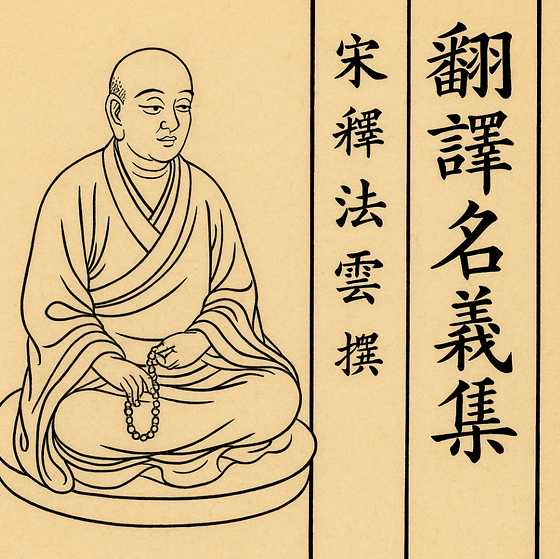 翻譯名義集
宋釋法雲撰